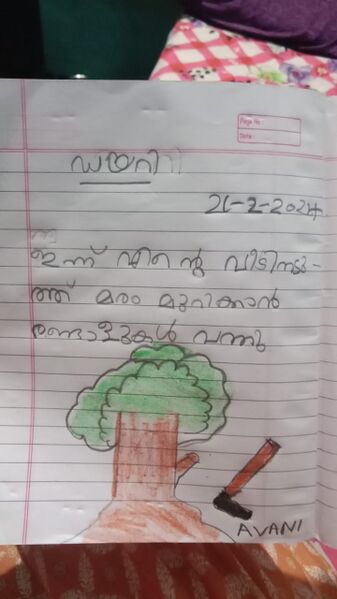 Page No :
Date :
ഡയറി
21-2-2024
ഇന്ന് എന്റെ വീടിനടു-
ത്ത് മരം മുറിക്കാൻ
രണ്ടാളുകൾ വന്നു
AVANI